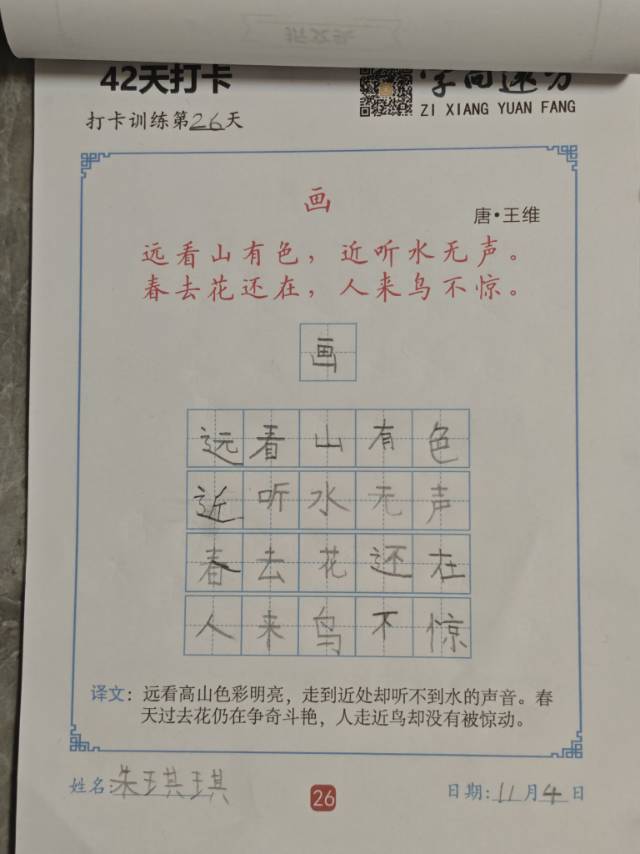 42天打卡
ZI XIANG YUAN FANG
打卡训练第26天
画
唐·王维
远看山有色，近听水无声。
春去花还在，人来鸟不惊。
画
远看山有色
近听水无声
春去花还在
人来鸟不惊
译文：远看高山色彩明亮，走到近处却听不到水的声音。春
天过去花仍在争奇斗艳，人走近鸟却没有被惊动。
姓名:朱琪琪
26
日期:11月4日